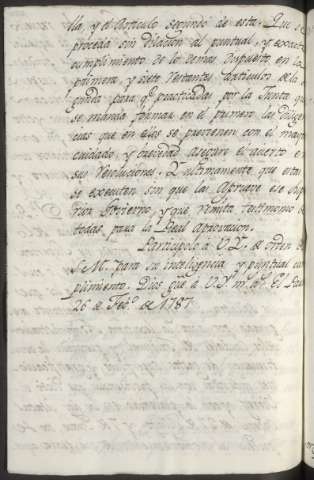 lla, y el Articulo segundo de esta. Que se
proceda sin dilacion al puntual, y exacto
cumplimiento de lo demas dispuesto en la
primera, y siete restantes articulos de la se
gunda para qe. practicadas por la Junta que
se manda formar en el primero las diligen
cias que en ellos se previenen con el mayor
cuidado, y brevedad asegure el acierto en
sus resoluciones. Y ultimamente que estas
se executen sin que las Apruebe ese Supe
rior Govierno, y que remita testimonio de
todas, para la Real Aprovacion.
Participolo à V.E. de orden de
S.M. para su inteligencia, y puntual cum
plimiento. Dios gue à V.E. ms. as. El Pardo
26 de Febo. de 1787.